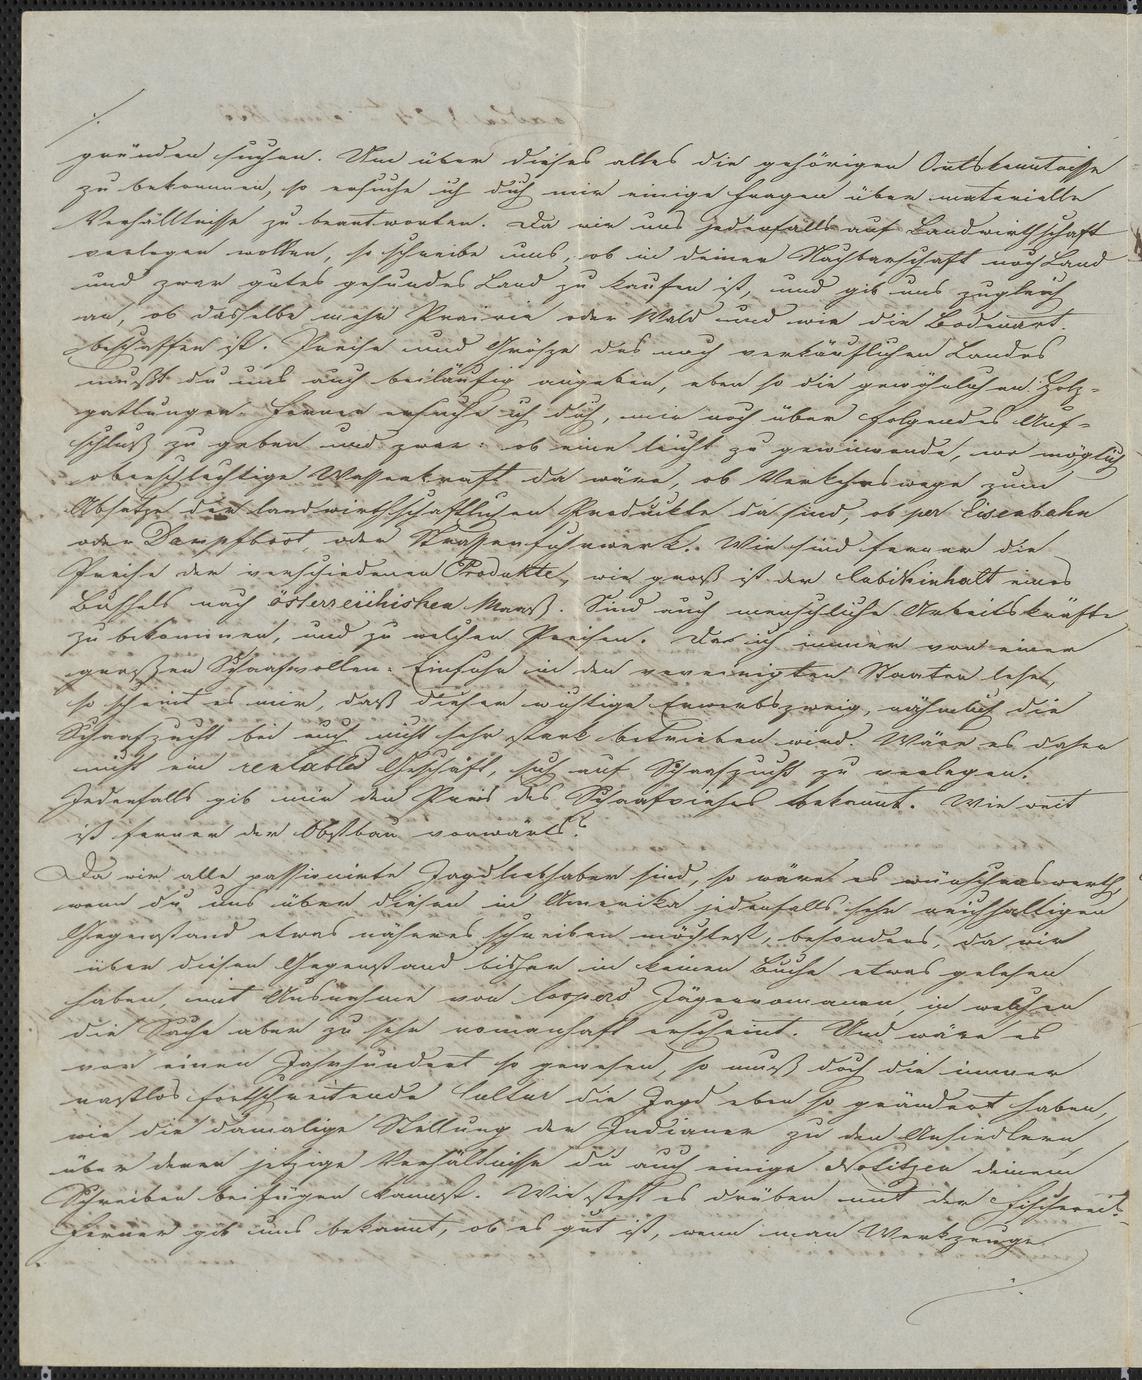 ./.
gründen suchen. Um über dieses alles die gehörigen Ortskenntnisse
zu bekommen, so ersuche ich dich mir einige Fragen über materielle
Verhälltnisse zu beantworten. Da wir uns jedenfalls auf Landwirthschaft
verlegen wollen, so schreibe uns, ob in deiner Nachbarschaft noch Land
und zwar gutes gesundes Land zu kaufen ist, und gib uns zugleich
an, ob dasselbe mehr Prairie oder Wald und wie die Bodenart
beschaffen ist. Preise und Größze des noch verkäuflichen Landes
mußt du uns auch beiläufig angeben, eben so die gewöhnlichen Holz-
gattungen. Ferner ersuche ich dich, mir noch über folgendes Auf-
schluß zu geben und zwar: ob eine leicht zu gewinnende, wo möglich
oberschlechtige Wasserkraft da wäre, ob Verkehrswege zum
Absatze der landwirthschaftlichen Produckte da sind, ob per Eisenbahn
oder Dampfboot, oder Strassenfuhrwerk. Wie sind ferner die
Preise der verschiedenen Produkte, wie groß ist der Cubikinhalt eines
Bushels nach österreichischen Maaß. Sind auch menschliche Arbeitskräfte
zu bekommen, und zu welchen Preisen. Da ich immer von einer
großen Schaafwollen-Einfuhr in den vereinigten Staaten lese,
so scheint es mir, daß dieser wichtige Erwerbszweig, nähmlich die
Schaafzucht bei euch nicht sehr stark betrieben wird. Wäre es daher
nicht ein rentables Geschäft, sich auf Schaafzucht zu verlegen.
Jedenfalls gib mir den Preis des Schaafviehes bekannt. Wie weit
ist ferner der Obstbau vorwärts?
Da wir alle passionirte Jagdliebhaber sind, so wäre es wünschenswerth
wenn du uns über diesen in Amerika jedenfalls sehr reichhaltigen
Gegenstand etwas näheres schreiben möchtest, besonders, da wir
über diesen Gegenstand bisher in keinen Buche etwas gelesen
haben, mit Ausnahme von Coopers Jägerromanen, in welchen
die Sache aber zu sehr romanhaft erscheint. Und wäre es
vor einen Jahrhundert so gewesen, so muß doch die immer
rastlos fortschreitende Cultur die Jagd eben so geändert haben,
wie die damalige Stellung der Indianer zu den Ansiedlern,
über deren jetzige Verhältnisse du auch einige Notitzen deinem
Schreiben beifügen kannst. Wie steht es drüben mit der Fischerei?
Ferner gib uns bekannt, ob es gut ist, wenn man Werkzeuge
./.